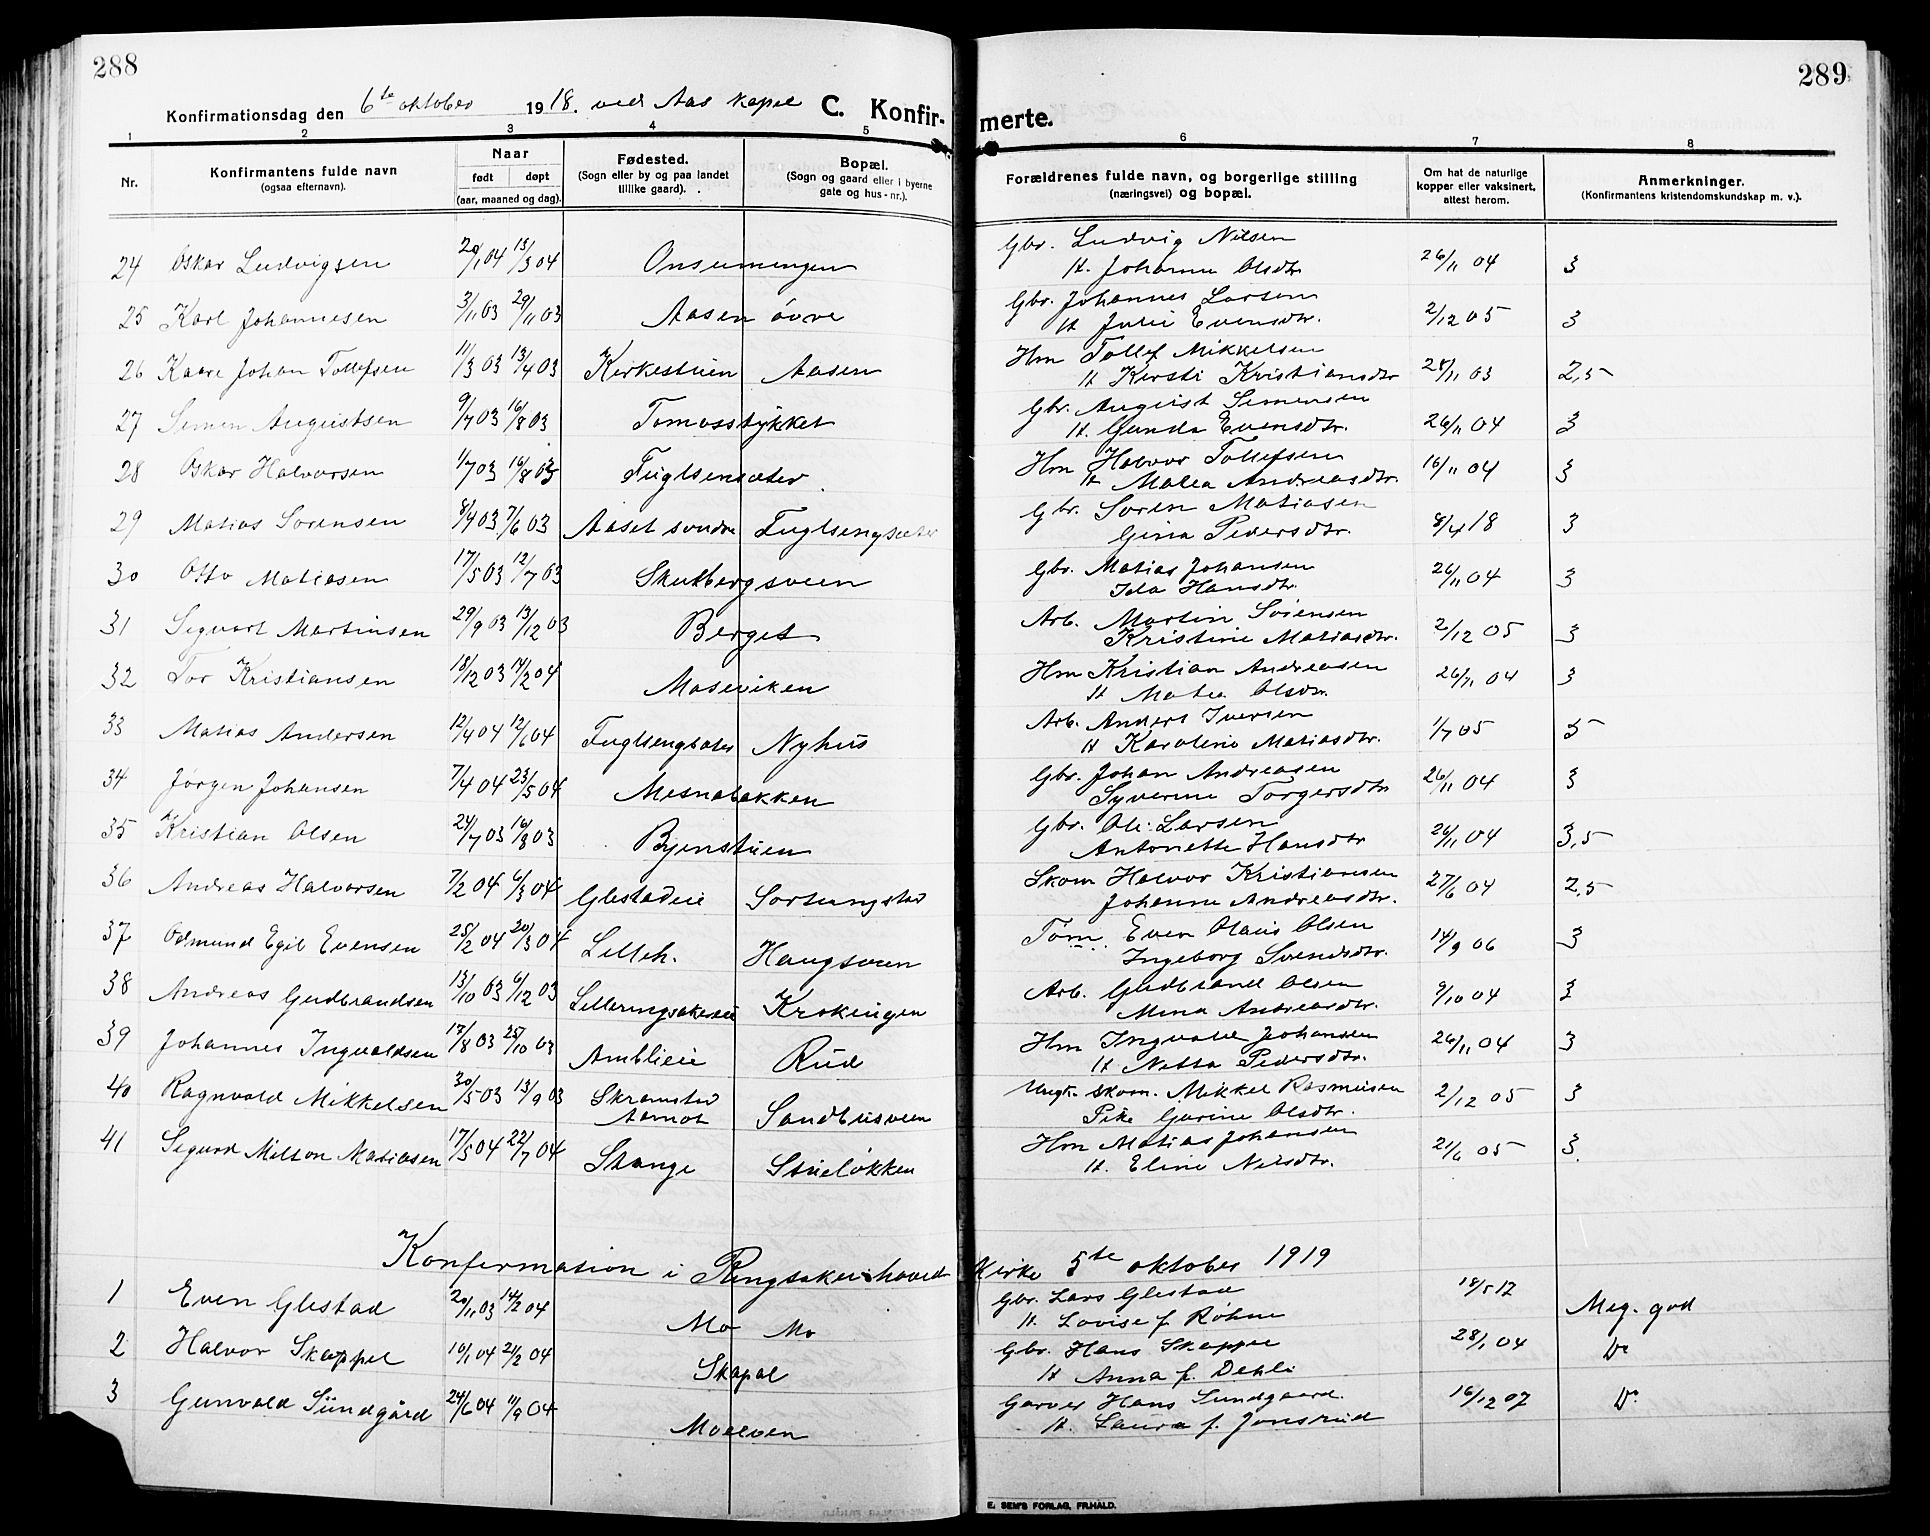 288
289
Konfirmationsdag den 6te oktober 1918. ved Aas kapel C. Konfir- merte.
1 2 3 4 5 6 7 8
Nr. Konfirmantens fulde navn (ogsaa efternavn). Naar født døpt (aar, maaned og dag). Fødested. (Sogn eller by og paa landet tillike gaard). Bopæl. (Sogn og gaard eller i byerne gate og hus-nr.). Forældrenes fulde navn, og borgerlige stilling (næringsvei) og bopæl. Om hat de naturlige kopper eller vaksinert, attest herom. Anmerkninger. (Konfirmantens kristendomskundskap m. v.).
24 Oskar Ludvigsen 20/1 04 13/3 04 Onsumengen Gbr. Ludvig Nilsen 26/11 04 3
H. Johanne Olsdtr
25 Karl Johannesen 3/11 03 29/11 03 Aasen övre Gbr. Johannes Larsen 2/12 05 3
H Julie Evensdtr.
26 Kaare Johan Tollefsen 11/3 03 13/4 03 Kirkestuen Aasen Hm Tollef Mikkelsen 28/11 03 2,5
H Kersti Kristiansdtr
27 Simen Augustsen 9/7 03 16/8 03 Tomasstykket Gbr. August Simensen 26/11 04 3
H. Gunda Evensdtr.
28 Oskar Halvorsen 1/7 03 16/8 03 Fuglsensæter Hm Halvor Tollefsen 16/11 04 3
H Malea Andreasdtr.
29 Matias Sörensen 8/4 03 7/6 03 Aaset söndre Fuglsengsæter Gbr. Sören Matiasen 8/4 18 3
Gina Pedersdtr.
30 Otto Matiasen 17/5 03 12/7 03 Skutbergsveen Gbr. Matias Johansen 26/11 04 3
Ida Hansdtr.
31 Sigvart Martinsen 29/9 03 13/12 03 Berget Arb. Martin Sörensen 2/12 05 3
Kristine Matiasdtr.
32 Tor Kristiansen 18/12 03 14/2 04 Maseviken Hm Kristian Andreasen 26/11 04 3
H Matea Olsdtr.
33 Matias Andersen 12/4 04 12/6 04 Fuglsengsæter Nyhus Arb. Anders Iversen 1/7 05 5
H Karoline Matiasdtr.
34 Jørgen Johansen 7/4 04 23/5 04 Mesnabakken Gbr. Johan Andreasen 26/11 04 3
Syverine Torgersdtr
35 Kristian Olsen 24/7 03 16/8 03 Byenstuen Gbr. Ole Larsen 26/11 04 3,5
Antonette Hansdtr
36 Andreas Halvorsen 7/2 04 6/3 04 Glestadeie Sortungstad Skom Halvor Kristiansen 27/6 04 2,5
Johanne Andreasdtr.
37 Odmund Egil Evensen 25/2 04 20/3 04 Lilleh. Haugsveen Töm. Even Olaus Olsen 14/9 06 3
Ingeborg Svendsdtr.
38 Andreas Gudbrandsen 13/10 03 6/12 03 Lilleringsakereie Krokengen Arb. Gudbrand Olsen 9/10 04 3
Mina Andreasdtr.
39 Johannes Ingvaldsen 17/8 03 25/10 03 Amblieie Rud Hm Ingvald Johansen 26/11 04 3
H Netta Pedersdtr.
40 Ragnvald Mikkelsen 30/5 03 13/9 03 Skramstad Aamot Sandbusveen Ungk. skom. Mikkel Rasmusen 2/12 05 3
Pike Gurine Olsdtr.
41 Sigurd Milton Matiasen 17/5 04 22/7 04 Stange Stuelökken Hm Matias Johansen 21/6 05 3.
H. Eline Nilsdtr.
Konfirmation i Ringsaker hoved kirke 5te oktober 1919
1 Even Glestad 20/11 03 14/2 04 Mo Mo Gbr. Lars Glestad 18/5 12 Meg. god
H. Lovise f. Røhne
2 Halvor Skappel 10/1 04 21/2 04 Skapal Gbr. Hans Skappel 28/1 04 Do
H Anna f. Dehli
3 Gunvald Sundgård 24/6 04 11/9 04 Moelven Garver Hans Sundgaard. 16/12 07 Do
H. Laura f. Jonsrud
E. SEM'S FORLAG, FR.HALD.